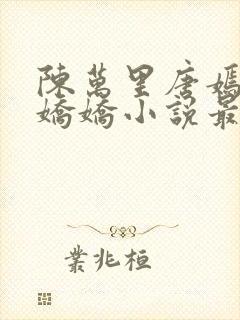 陳萬里唐嫣
嬌嬌小說最
業兆桓